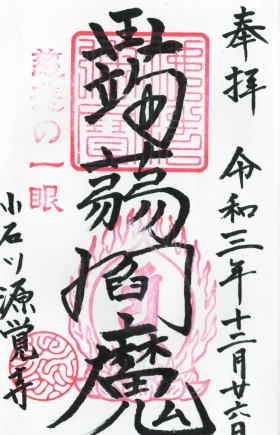 奉拝 令和三年十二月廿六日
蒟蒻閻魔
慈悲の一眼
小石川源覺寺